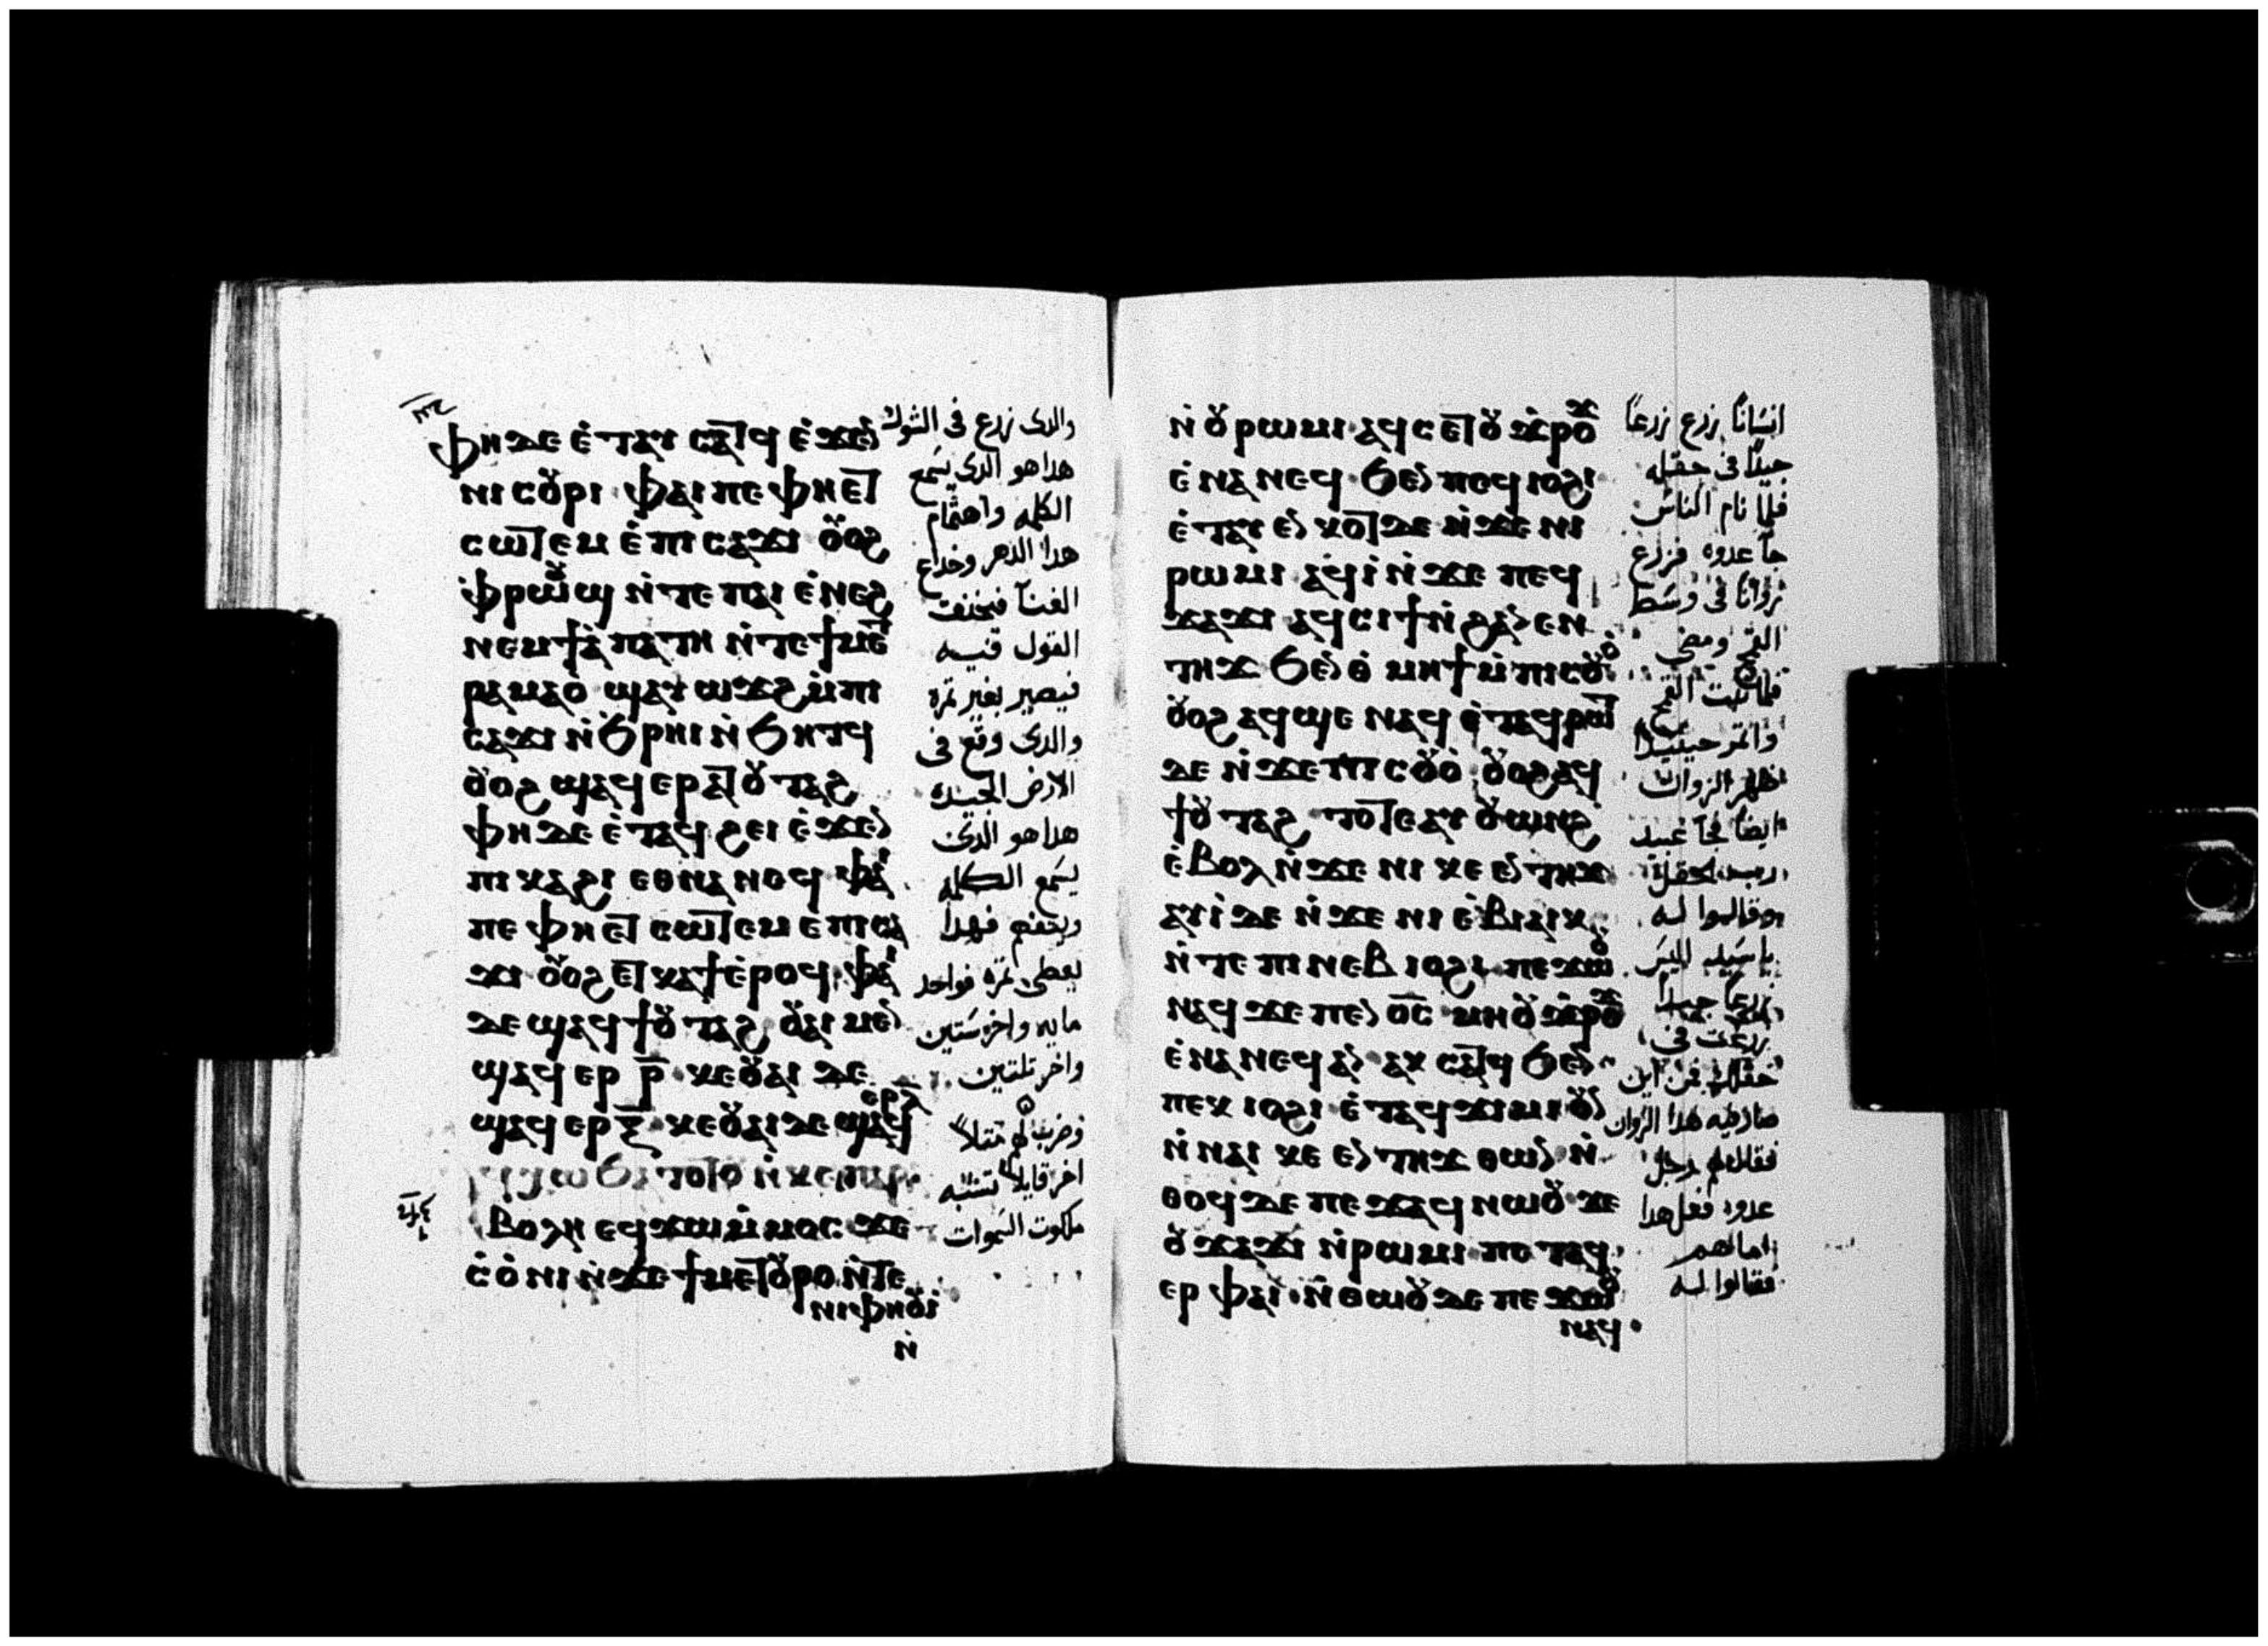 ⲫⲏ ⲇⲉ ⲉ̇ⲧⲁⲩ ⲥⲁⲧϥ ⲉ̇ϫⲉⲛ
ⲛⲓ ⲥⲟⲩⲣⲓ ⲫⲁⲓ ⲡⲉ ⲫⲏ ⲉⲧ
ⲥⲱⲧⲉⲙ ⲉ̇ⲡⲓ ⲥⲁϫⲓ ⲟⲩⲟϩ
ⲫⲣⲱⲟⲩϣ ⲛ̇ⲧⲉ ⲡⲁⲓ ⲉ̇ⲛⲉϩ
ⲛⲉⲙ ϯⲁ̇ⲡⲁⲧⲏ ⲛ̇ⲧⲉ ϯⲙⲉⲧ
ⲣⲁⲙⲁⲟ̇ ϣⲁⲩ ⲱϫϩ ⲙ̇ⲡⲓ
ⲥⲁϫⲓ ⲛ̇ϧⲣⲏⲓ ⲛ̇ϧⲏⲧϥ
ⲟⲩⲟϩ ϣⲁϥ ⲉⲣⲁⲧⲟⲩⲧⲁϩ
ⲫⲏ ⲇⲉ ⲉ̇ⲧⲁϥ ϩⲉⲓ ⲉ̇ϫⲉⲛ
ⲡⲓ ⲕⲁϩⲓ ⲉⲑⲛⲁⲛⲉϥ ⲫⲁⲓ
ⲡⲉ ⲫⲏ ⲉⲧ ⲥⲱⲧⲉⲙ ⲉ̇ⲡⲓ ⲥⲁ
ϫⲓ ⲟⲩⲟϩ ⲉⲧ ⲕⲁϯ ⲉ̇ⲣⲟϥ ⲫⲁⲓ
ⲇⲉ ϣⲁϥ ϯⲟⲩⲧⲁϩ ⲟⲩⲁⲓ ⲙⲉⲛ
ϣⲁϥ ⲉⲣ ⲣ̅ ⲕⲉⲟⲩⲁⲓ ⲇⲉ
ϣⲁϥ ⲉⲣ ⲝ̅ ⲕⲉⲟⲩⲁⲓ ⲇⲉ ϣⲁϥ ⲉⲣ ⲗ̅
ⲧⲟⲧⲟⲩ ⲛ̇ⲕⲉⲡⲁⲣⲁ
ⲃⲟⲗⲏ ⲉϥϫⲱ ⲙ̇ⲙⲟⲥ ϫⲉ
ⲥ̇ⲟ̇ⲛⲓ ⲛ̇ϫⲉ ϯⲙⲉⲧⲟⲩⲣⲟ ⲛ̇ⲧⲉ
ⲛⲓⲫⲏⲟⲩⲓ̇
ⲛ̇
والدى زرع فى الشوك
هدا هو الدى يسمع
الكلمه واهتمام
هدا الدهر وخداع
الغنا فيخنف
القول فيه
فيصير بغير تمره
والدى وقع فى
الارض الجيده
هدا هو الدى
يسمع الكلمه
ويتفهم فهدا
يعطى تمره فواحد
مايه واخر ستين
واخر تلتين
وضرب لهم متلاً
اخر قايلاً تشبه
ملكوت السموات
ⲛ̇ⲟⲩⲣⲱⲙⲓ ⲁϥ ⲥⲉⲧ ⲟⲩϫ̇ⲣⲟϫ
ⲉ̇ⲛⲁⲛⲉϥ ϧⲉⲛ ⲡⲉϥ ⲓⲟϩⲓ
ⲉ̇ⲧⲁⲩ ⲉⲛⲕⲟⲧ ⲇⲉ ⲛ̇ϫⲉ ⲛⲓ
ⲣⲱⲙⲓ ⲁϥⲓ̇ ⲛ̇ϫⲉ ⲡⲉϥ
ϫⲁϫⲓ ⲁϥ ⲥⲓϯ ⲛ̇ϩⲁⲛⲉⲛ
ⲧⲏϫ ϧⲉⲛ ⲑ̇ⲙⲏϯ ⲙ̇ⲡⲓ ⲥⲟⲩⲟ̇
ⲟⲩⲟϩ ⲁϥ ϣⲉ ⲛⲁϥ ⲉ̇ⲧⲁϥ ⲣⲱⲧ
ⲇⲉ ⲛ̇ϫⲉ ⲡⲓ ⲥⲟⲩⲟ̇ ⲟⲩⲟϩ ⲁϥ
ϯⲟⲩⲧⲁϩ ⲧⲟⲧⲉ ⲁⲩ ⲟⲩⲱⲛϩ
ⲉ̇ⲃⲟⲗ ⲛ̇ϫⲉ ⲛⲓ ⲕⲉ ⲉⲛⲧⲏϫ
ⲁⲩⲓ̇ ⲇⲉ ⲛ̇ϫⲉ ⲛⲓ ⲉ̇ⲃⲓⲁⲓⲕ
ⲛ̇ⲧⲉ ⲡⲓ ⲛⲉⲃ ⲓⲟϩⲓ ⲡⲉϫⲱⲟⲩ
ⲛⲁϥ ϫⲉ ⲡⲉⲛ ⲟ̅ⲥ̅ ⲙⲏ ⲟⲩϫ̇ⲣⲟϫ
ⲉ̇ⲛⲁⲛⲉϥ ⲁⲛ ⲁⲕ ⲥⲁⲧϥ ϧⲉⲛ
ⲡⲉⲕ ⲓⲟϩⲓ ⲉ̇ⲧⲁϥ ϫⲓⲙⲓ ⲟⲩⲛ
ⲛ̇ⲛⲁⲓ ⲕⲉ ⲉⲛⲧⲏϫ ⲑⲱⲛ ⲛ̇
ⲑⲟϥ ⲇⲉ ⲡⲉϫⲁϥ ⲛⲱⲟⲩ ϫⲉ
ⲟⲩϫⲁϫⲓ ⲛ̇ⲣⲱⲙⲓ ⲡⲉⲧⲁϥ
ⲉⲣ ⲫⲁⲓ ⲛ̇ⲑⲱⲟⲩ ⲇⲉ ⲡⲉϫⲱⲟⲩ
ⲛⲁϥ
انسانًا زرع زرعًا
جيدًا فى حقله
فلما نام الناس
جا عدوه فزرع
زوانًا فى وسط
القمح ومضى
فلما نبت القمح
واتمر حينيدا
ظهر الزوان
ايضًا فجا عبيد
رب الحقل
وقالوا له
يا سيد اليس
زرعًا جيدًا
زرعت فى
حقلك فمن اين
صار فيه هدا الزوان
فقال لهم رجل
عدو فعل هدا
اما هم
فقالوا له